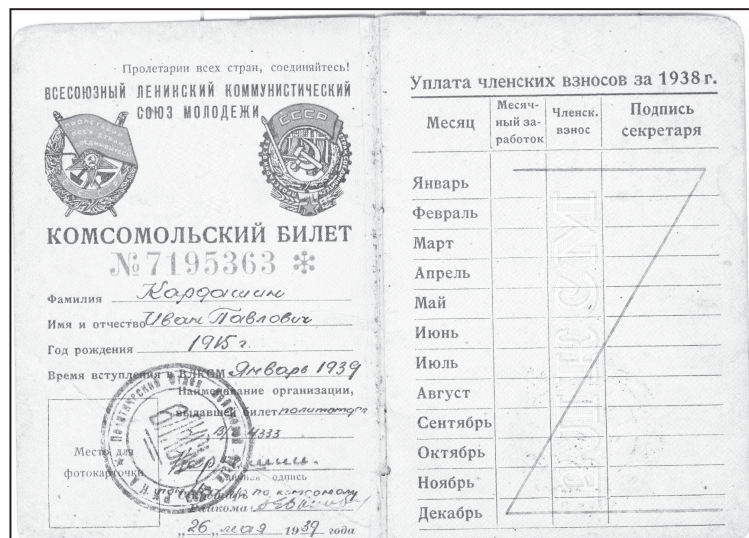 Пролетарии всех стран, соединяйтесь!
ВСЕСОЮЗНЫЙ ЛЕНИНСКИЙ КОММУНИСТИЧЕСКИЙ
СОЮЗ МОЛОДЕЖИ
СССР
КОМСОМОЛЬСКИЙ БИЛЕТ
№ 7195363
Фамилия Кардашин
Имя и отчество Иван Павлович
Год рождения 1915 г.
Время вступления в ВЛКСМ Январь 1939
Наименование организации,
выдавшей билет политотдел
в/ч 4333
Место для
фотокарточки
Личная подпись
по комсомолу
Райкома
„26„ мая 1939 года
Уплата членских взносов за 1938 г.
Месяц
Месяч-
ный за-
работок
Членск.
взнос
Подпись
секретаря
Январь
Февраль
Март
Апрель
Май
Июнь
Июль
Август
Сентябрь
Октябрь
Ноябрь
Декабрь